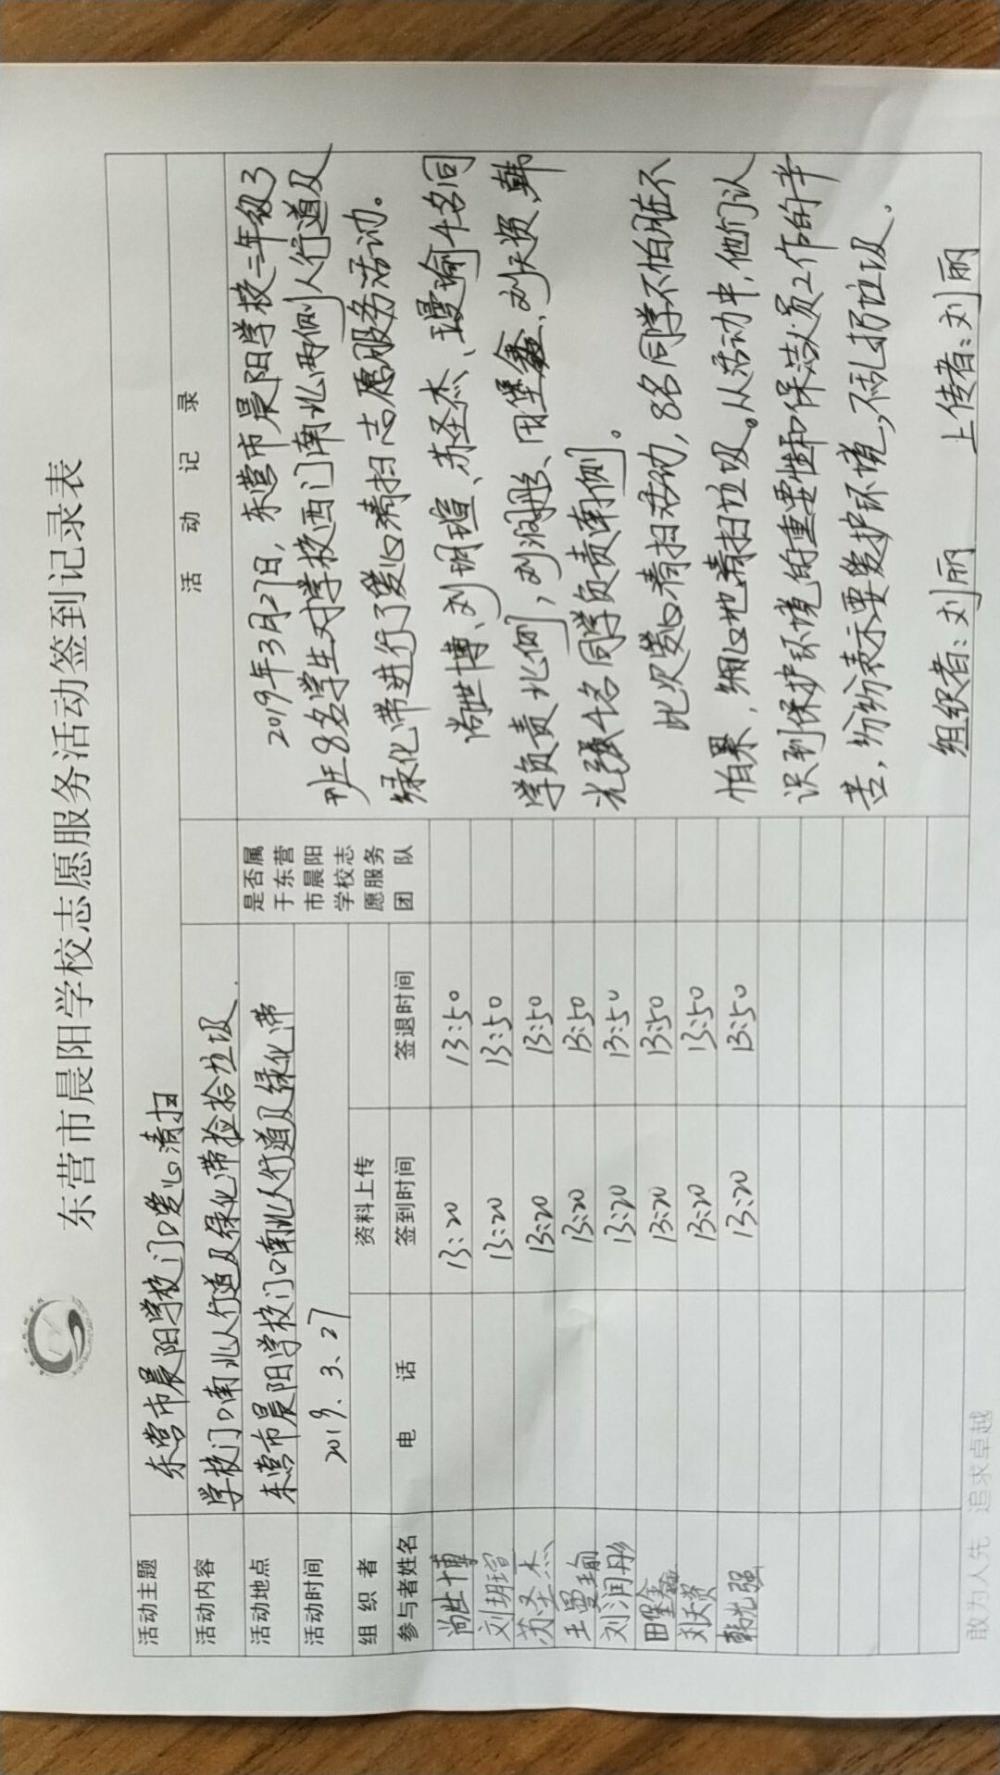 东营市晨阳学校志愿服务活动签到记录表
活动主题 东营市晨阳学校门口爱心清扫
活动内容 学校门口南北人行道及绿化带捡拾垃圾.
活动地点 东营市晨阳学校门口南北人行道及绿化带
活动时间 2019.3.27
组织者 资料上传
是否属
于东营
市晨阳
学校志
愿服务
团队
参与者姓名 电话 签到时间 签退时间
尚世博 13:20 13:50
刘玥瑄 13:20 13:50
苏圣杰 13:20 13:50
王曼瑜 13:20 13:50
刘润彤 13:20 13:50
田堡鑫 13:20 13:50
刘天赟 13:20 13:50
韩光强 13:20 13:50
活动记录
2019年3月27日,东营市晨阳学校二年级3
班8名学生对学校西门南北两侧人行道及
绿化带进行了爱心清扫志愿服务活动。
尚世博、刘玥瑄、苏圣杰、王曼瑜4名同
学负责北侧,刘润彤、田堡鑫、刘天赟、韩
光强4名同学负责南侧。
此次爱心清扫活动,8名同学不怕脏不
怕累,细心地清扫垃圾。从活动中,他们认
识到保护环境的重要性和保洁人员工作的辛
苦,纷纷表示要爱护环境,不乱扔垃圾.
组织者:刘丽 上传者:刘丽
敢为人先 追求卓越